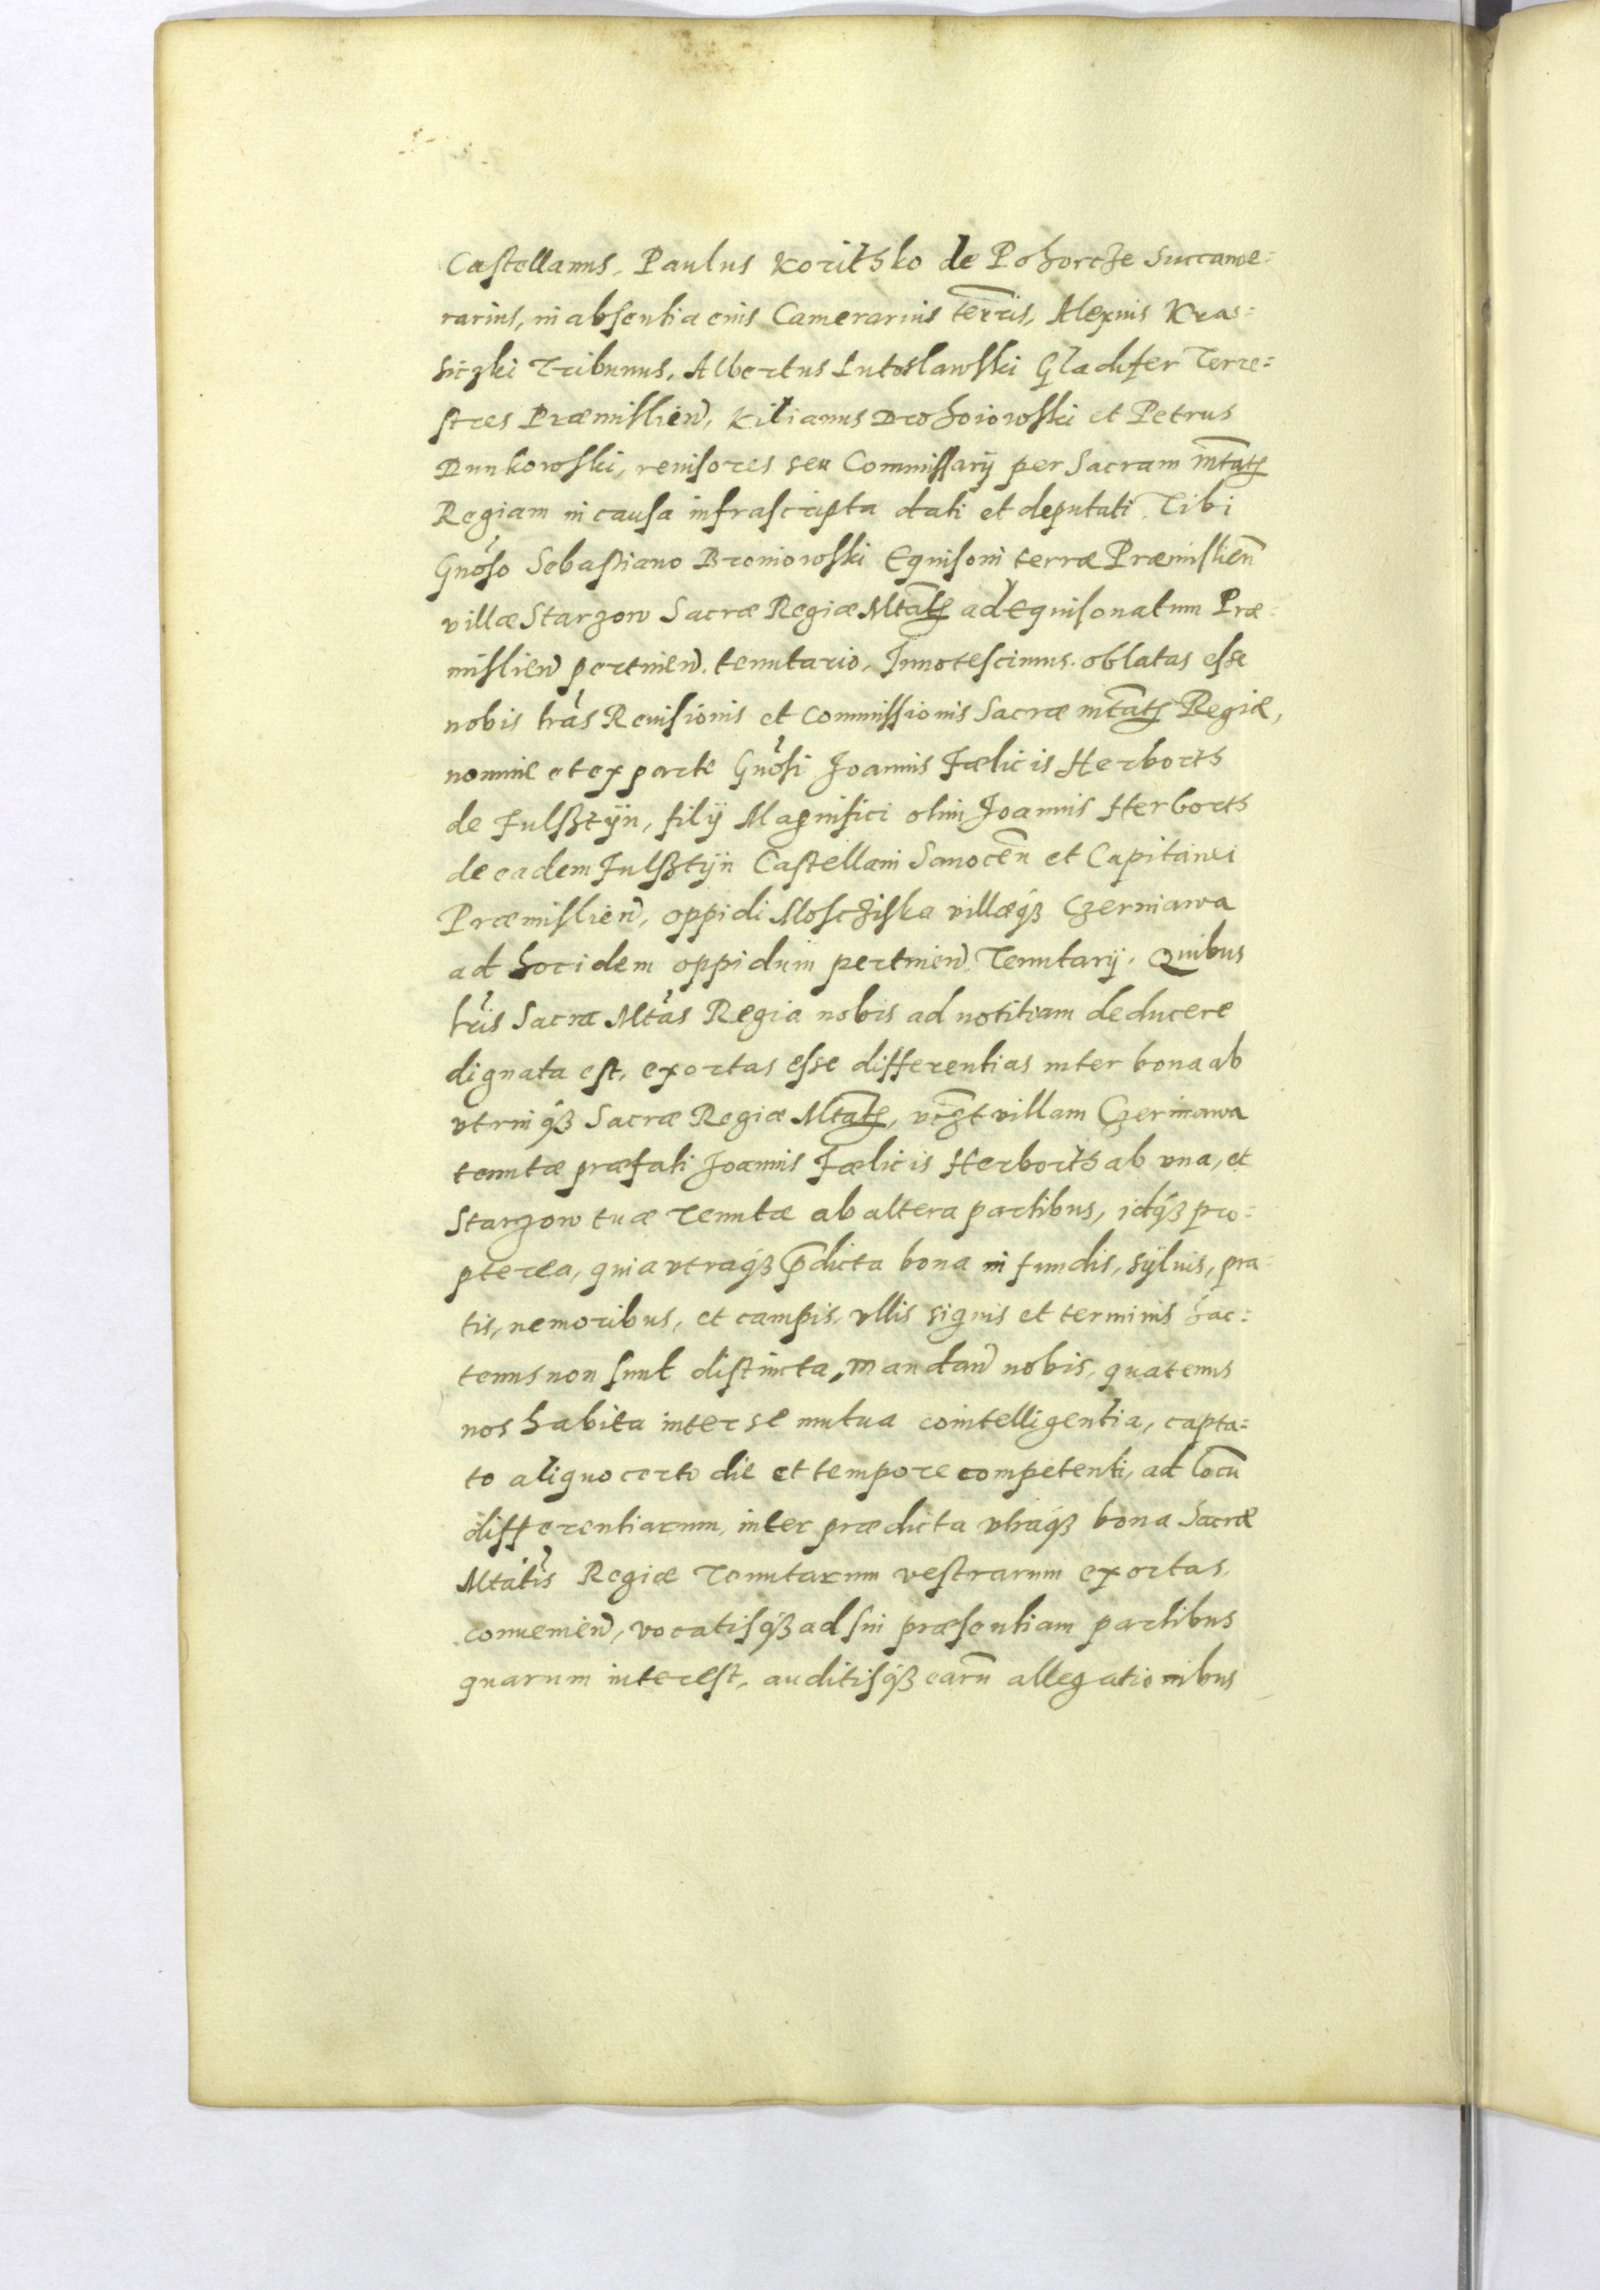 Castellanus, Paulus Korithko de Pohorcze Succame=
rarius, in absentia eius Camerarius terris, Alexius Kra=
siczki Tribunus, Albertus Lutoslawski Gladifer Terre=
stres Præmislien̄, Kilianus Drohoiowski et Petrus
Dunkowski, reuisores seu Commissarÿ per Sacram mtatẽ
Regiam in causa infrascripta dati et deputati Tibi
Gnoso Sebastiano Broniowski Equisoni terræ Præmislien̄
villæ Starzow Sacræ Regiæ Mtatẽ ad Equisonatum Præ=
mislien̄ pertinen̄. tenutario, Innotescimus. oblatas esse
nobis lrãs Reuisionis et Commissionis Sacræ mtatẽ Regiæ,
nomine et ex parte Gnosi Joannis Fælicis Herborth
de Fulsztÿn, filÿ Magnifici olim Joannis Herborth
de eadem Fulsztÿn Castellani Sanocen̄ et Capitanei
Præmislien̄, oppidi Moscziska villæq́ꝫ Czerniawa
ad hoc idem oppidum pertinen̄. Tenutarÿ. Quibus
lrĩs Sacra Mtãs Regia nobis ad notitiam deducere
dignata est, exortas esse differentias inter bona ab
vtrinq́ꝫ Sacræ Regiæ Mtatẽ, vcꝫt villam Czerniawa
tenutæ præfati Joannis Fælicis Herborth ab vna, et
Starzow tuæ Tenutæ ab altera partibus, idq́ꝫ pro=
pterea, quia vtraq́ꝫ p̄dicta bona in fundis, sÿluis, pra=
tis, nemoribus, et campis, vllis signis et terminis hac=
tenus non sunt distincta, mandan̄ nobis, quatenus
nos habita inter se mutua cointelligentia, capta=
to aliquo certo die et tempore competenti, ad locũ
differentiarum, inter prædicta vtraq́ꝫ bona Sacræ
Mtatis Regiæ Tenutarum vestrarum exortas
conuenien̄, vocatisq́ꝫ ad sui præsentiam partibus
quarum interest, auditisq́ꝫ earũ allegationibus